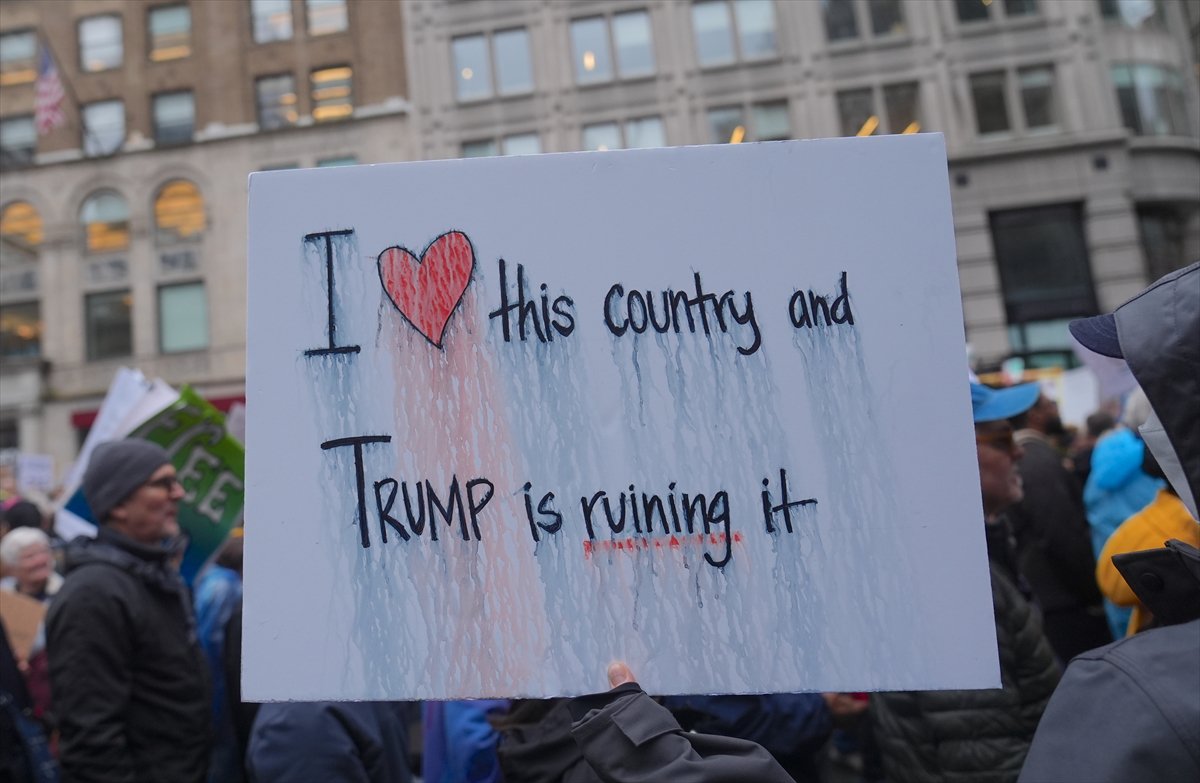 I ❤ this country and
TRUMP is ruining it